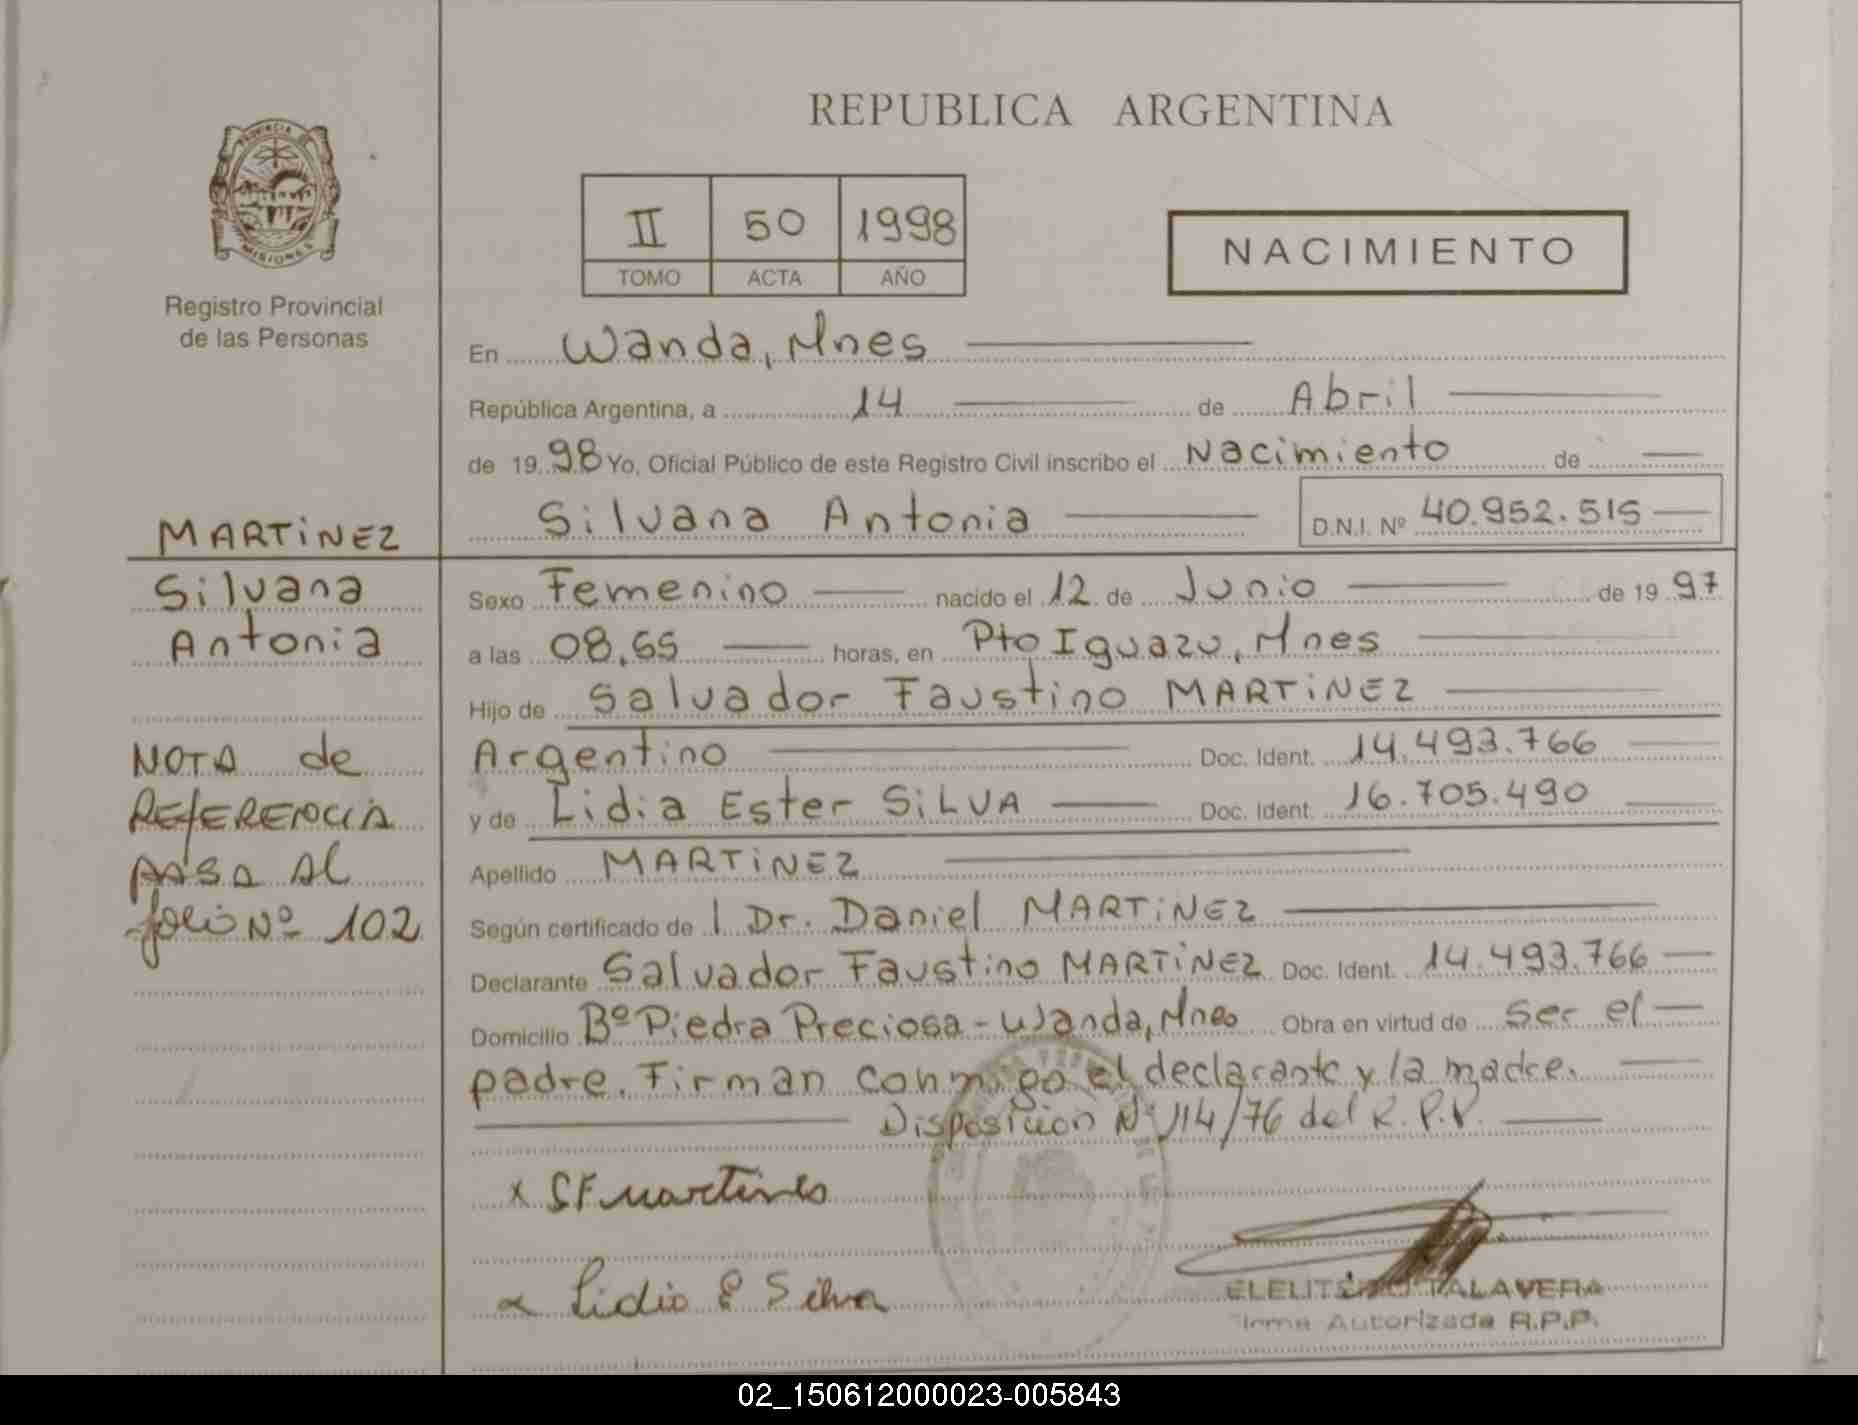 REPUBLICA ARGENTINA
PROVINCIA DE
MISIONES
Registro Provincial
de las Personas
II 50 1998
TOMO ACTA AÑO
NACIMIENTO
En Wanda, Mnes
República Argentina, a 14 de Abril
de 1998 Yo, Oficial Público de este Registro Civil inscribo el Nacimiento de
Silvana Antonia D.N.I. Nº 40.952.515
MARTINEZ
Silvana
Antonia
NOTA de
REFERENCIA
PASA AL
folio Nº 102
Sexo Femenino nacido el 12 de Junio de 1997
a las 08,55 horas, en Pto Iguazu, Mnes
Hijo de Salvador Faustino MARTINEZ
Argentino Doc. Ident. 14.493.766
y de Lidia Ester SILVA Doc. Ident. 16.705.490
Apellido MARTINEZ
Según certificado de l Dr. Daniel MARTINEZ
Declarante Salvador Faustino MARTINEZ Doc. Ident. 14.493.766
Domicilio Bº Piedra Preciosa - Wanda, Mnes Obra en virtud de ser el
padre. Firman conmigo el declarante y la madre.
Disposicion Nº 114/76 del R.P.P.
x S F Martines
x Lidia E Silva
ELEUTERIO TALAVERA
Firma Autorizada R.P.P.
02_150612000023-005843